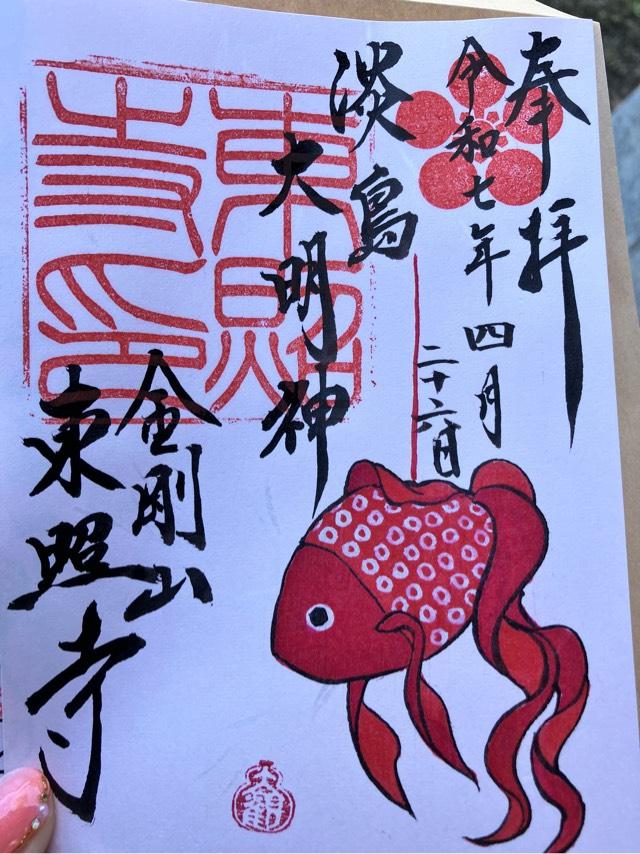 奉拝
令和七年四月二十六日
淡島
大明神
金剛山
東照寺
東照
寺印